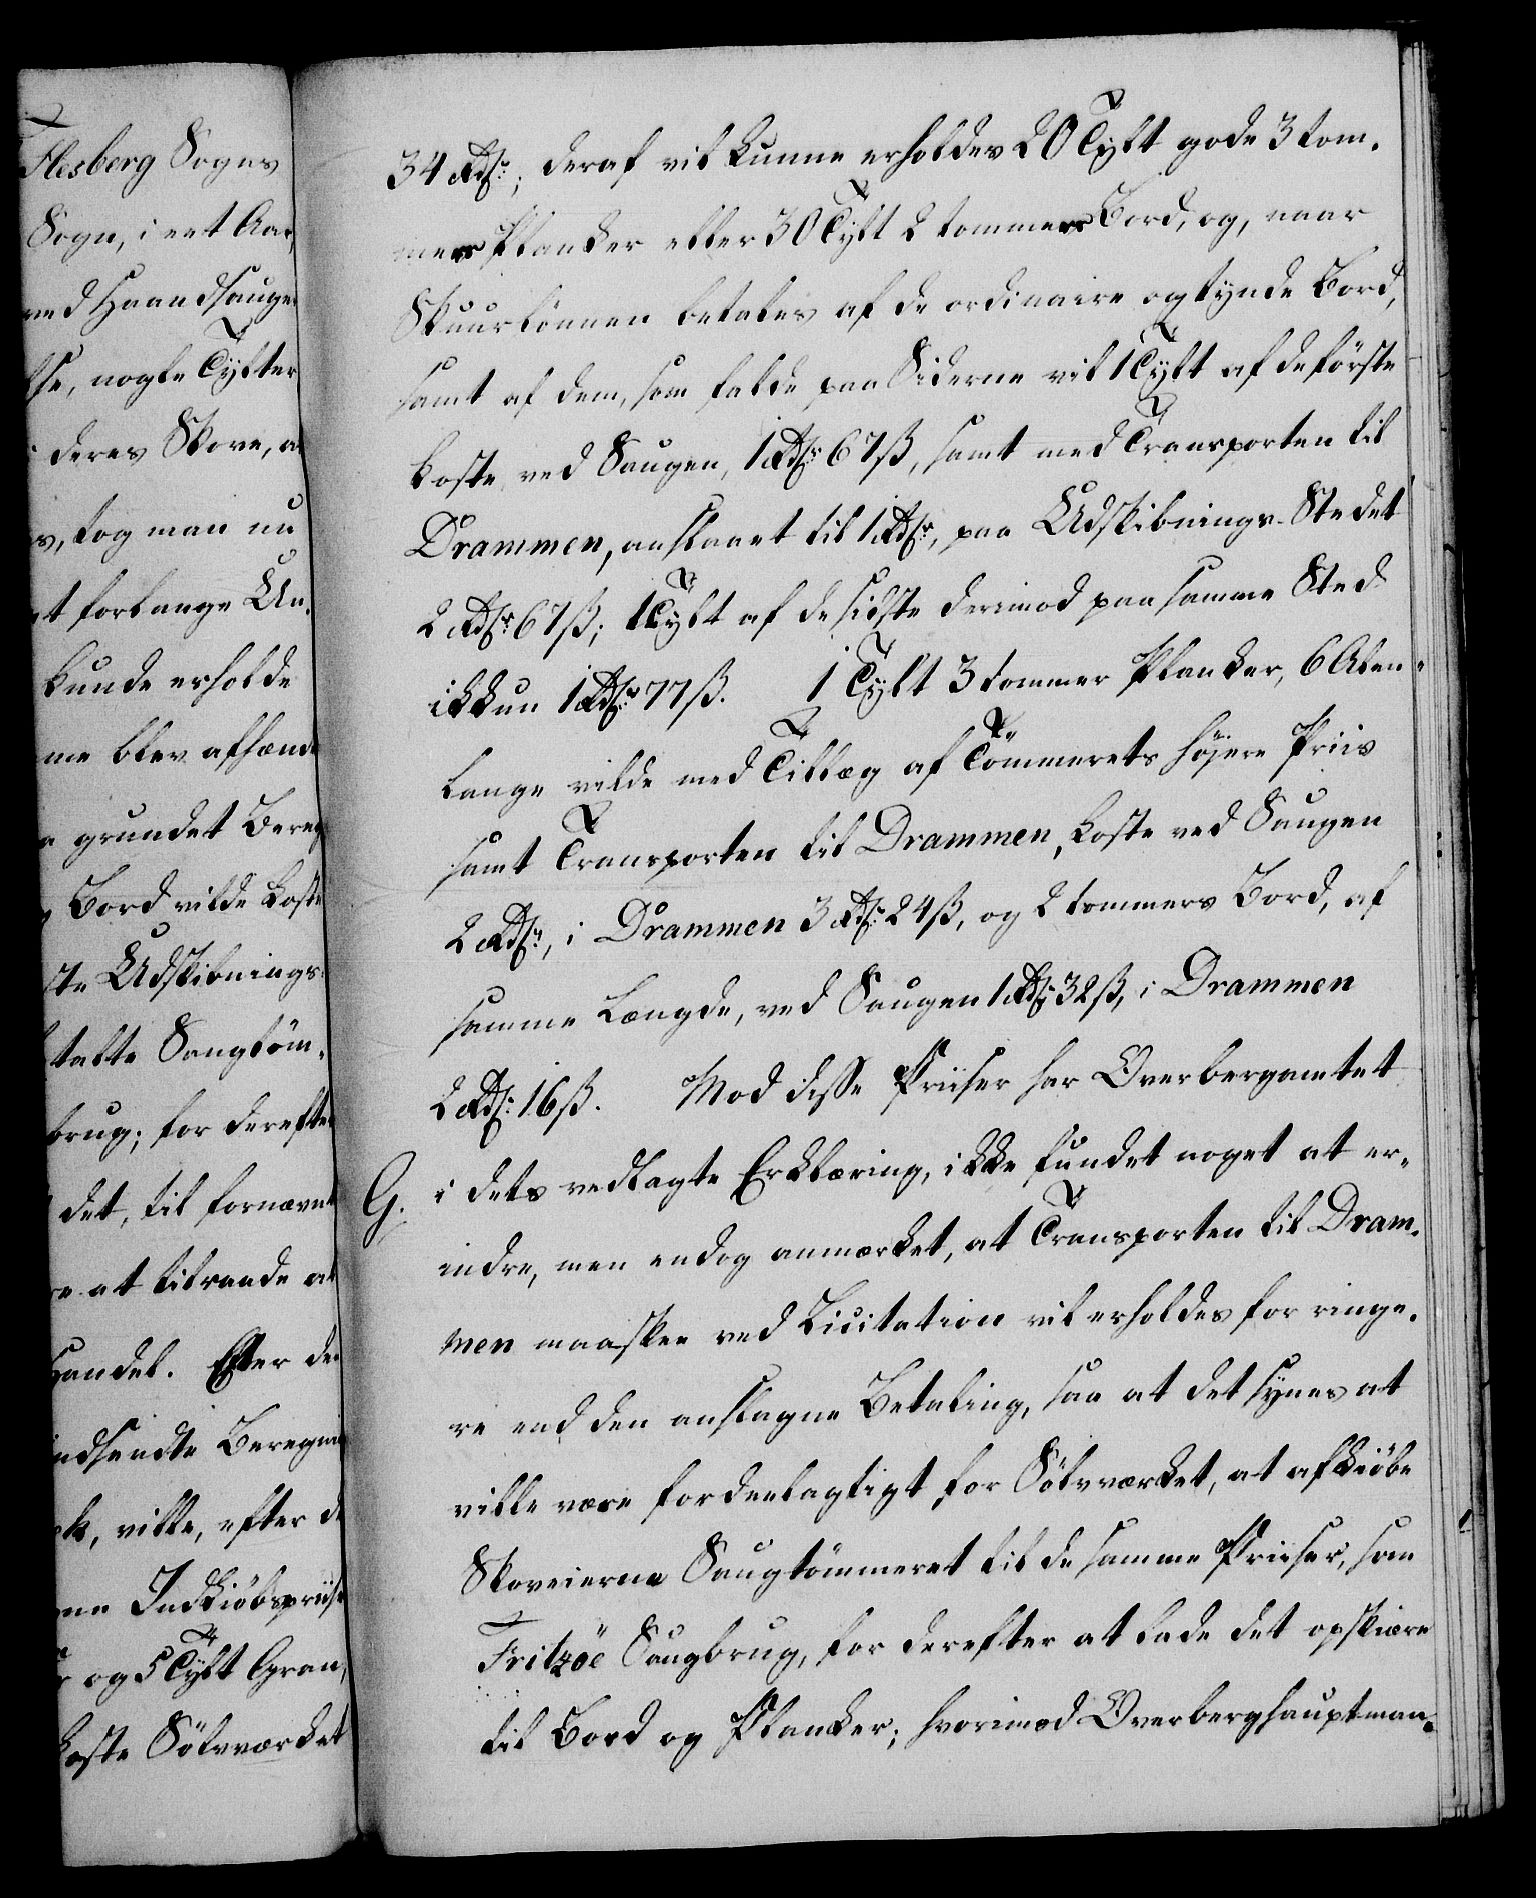 Flesberg Sogns
Sogn, i eet Aar,
med Haandsauge
lse, nogle Tylter
deres Skove, a
s, tog man nu
t forlange Un¬
kunde erholde
me blev afhænd
grundet Bereg
Bord vilde koste
ste Udskibnings¬
talte Saugtöm¬
brug; for derefter
det, til fornævnt
re at tilraade at
Handel. Efter de
indsendte Beregni
k, ville, efter d
ne Indkiöbspriise
og 5 Tylt Gran,
koste Sölvværket
34 Rdr; deraf vil kunne erholdes 20 Tylt gode 3 tom¬
mers Planker eller 30 Tylt 2 tommers Bord, og, naar
Skuurlönnen betales af de ordinaire og tynde Bord,
samt af dem, som falde paa Siderne vil 1 Tylt af de förste
koste ved Saugen, 1 Rdr 67 ß, samt med Transporten til
Drammen, anslaaet til 1 Rdr, paa Udskibnings-Stedet
2 Rdr 67 ß; 1 Tylt af de sidste derimod paa samme Sted
ikkun 1 Rdr 77 ß. 1 Tylt 3 tommer Planker, 6 Alen
lange vilde med Tillæg af Tömmerets höjere Priis
samt Transporten til Drammen, koste ved Saugen
2 Rdr, i Drammen 3 Rdr 24 ß, og 2 tommers Bord, af
samme Længde, ved Saugen 1 Rdr 32 ß, i Drammen
2 Rdr 16 ß. Mod disse Priiser har Overbergamtet
G. i dets vedlagte Erklæring, ikke fundet noget at er¬
indre, men endog anmærket, at Transporten til Dram¬
men maaskee ved Licitation vil erholdes for ringe¬
re end den anslagne Betaling, saa at det synes at
ville være fordeelagtigt for Sölvværket, at afkiöbe
Skoveierne Saugtömmeret til de samme Priiser, som
Fritzöe Saugbrug, for derefter at lade det opskiære
til Bord og Planker; hvorimod Overberghauptman¬